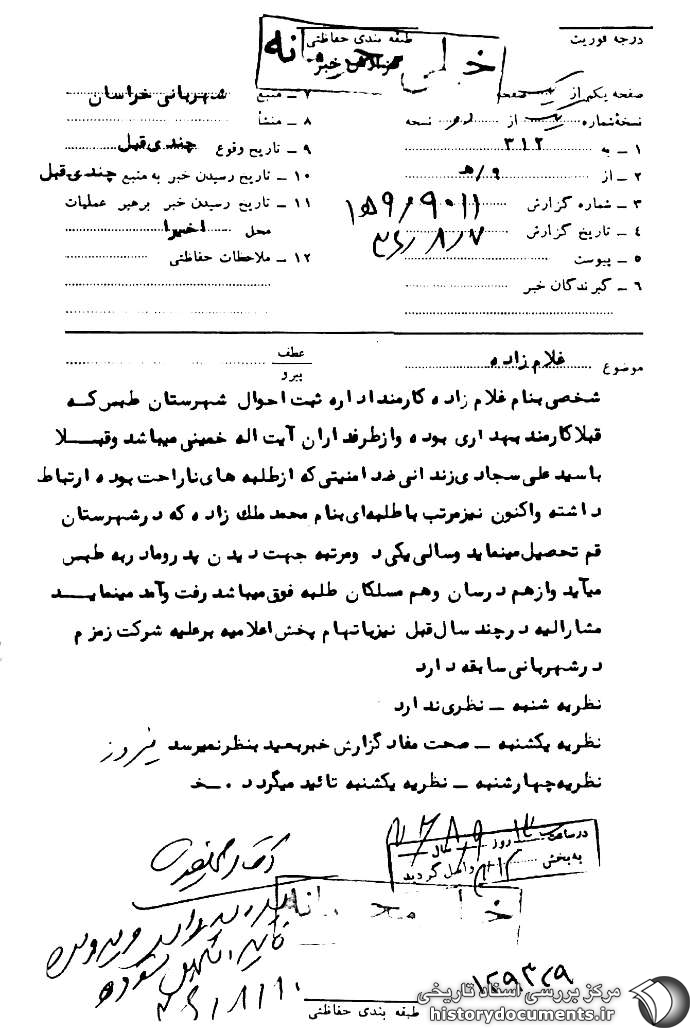 درجه فوریت
طبقه بندی حفاظتی
خیلی محرمانه
گزارش خبر
صفحه یکم از یک صفحه
نسخه شماره یک از نسخه
۱ ـ به ۳۱۲
۲ ـ از ۹/ه
۳ ـ شماره گزارش ۱۵۹۰۹۰۱۱
۴ ـ تاریخ گزارش ۳۶/۸/۷
۵ ـ پیوست
۶ ـ گیرندگان خبر
۷ ـ منبع شهربانی خراسان
۸ ـ منشأ
۹ ـ تاریخ وقوع چندی قبل
۱۰ ـ تاریخ رسیدن خبر به منبع چندی قبل
۱۱ ـ تاریخ رسیدن خبر برهبر عملیات
محل اخیرا
۱۲ ـ ملاحظات حفاظتی
موضوع غلام زاده
عطف
پیرو
شخصی بنام غلام زاده کارمند اداره ثبت احوال شهرستان طبس که
قبلا کارمند بهداری بوده و از طرفداران آیت اله خمینی میباشد و قبلا
با سید علی سجادی زندانی ضد امنیتی که از طلبه های ناراحت بوده ارتباط
داشته و اکنون نیز مرتب با طلبه‌ای بنام محمد ملک زاده که در شهرستان
قم تحصیل مینماید و سالی یکی دو مرتبه جهت دیدن پدر و مادر به طبس
میآید و از هم درسان و هم مسلکان طلبه فوق میباشد رفت و آمد مینماید
مشارالیه در چند سال قبل نیز باتهام پخش اعلامیه بر علیه شرکت زمزم
در شهربانی سابقه دارد
نظریه شنبه ـ نظری ندارد
نظریه یکشنبه ـ صحت مفاد گزارش خبر بعید بنظر نمیرسد پیروز
نظریه چهارشنبه ـ نظریه یکشنبه تائید میگردد ۰ ـ خ
در ساعت روز سال
به بخش ۳۱۲ داخل گردید
خیلی محرمانه
۳۶/۸/۱۰
طبقه بندی حفاظتی
۱۲۹۳۲۹
مرکز بررسی اسناد تاریخی
historydocuments.ir